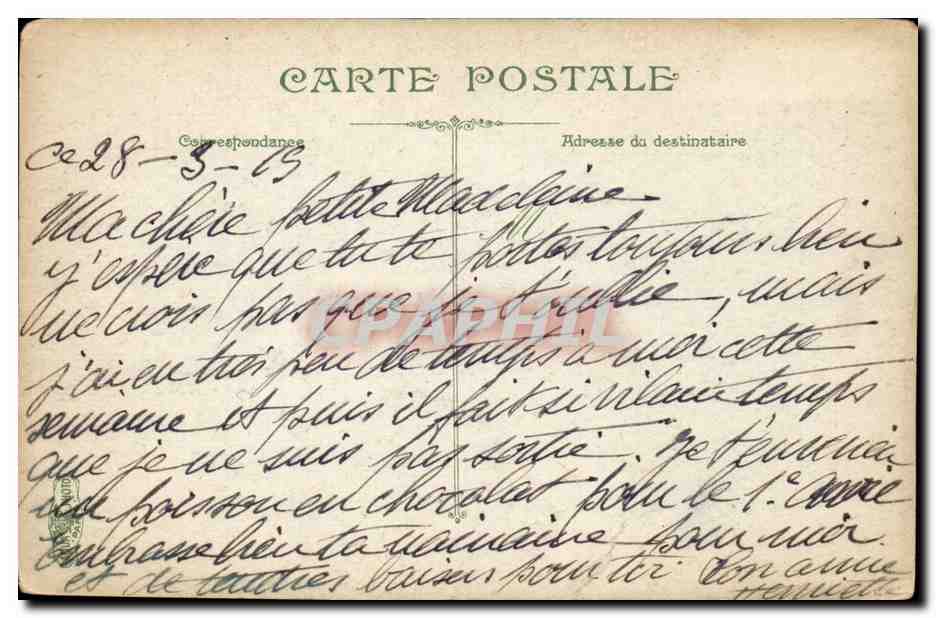 CARTE POSTALE
Correspondance
Adresse du destinataire
Ce 28 - 3 - 19
Ma chère petite Madeleine
j'espère que tu te portes toujours bien
ne crois pas que je t'oublie, mais
j'ai eu très peu de temps à moi cette
semaine et puis il fait si vilain temps
que je ne suis pas sortie. Je t'envoie
un poisson en chocolat pour le 1e avril
embrasse bien ta maman pour moi.
et de tendres baisers pour toi. Ton amie
Henriette
CPAPHIL